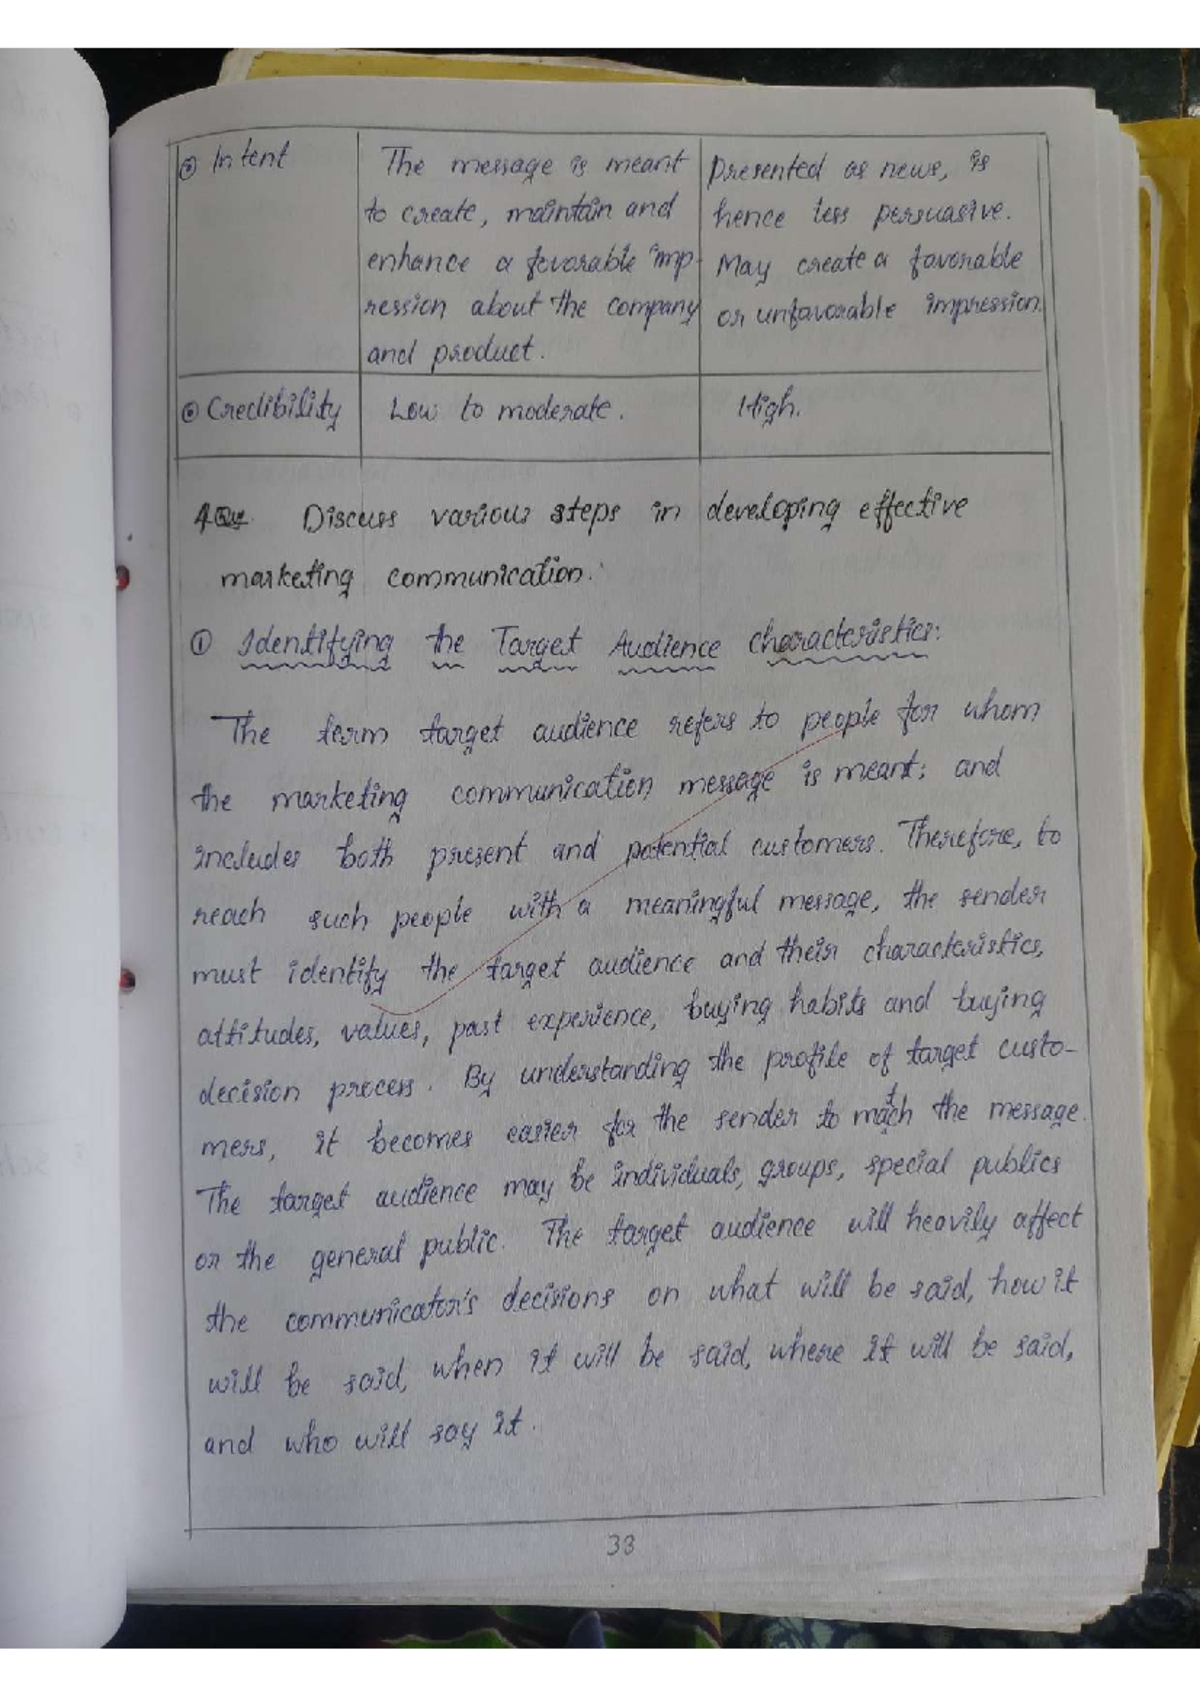 ⑤ Intent
The message is meant
to create, maintain and
enhance a favorable imp-
ression about the company
and product.
Presented as news, is
hence less persuasive.
May create a favorable
or unfavorable impression.
⑥ Credibility
Low to moderate.
High.
4Q. Discuss various steps in developing effective
marketing communication.
① Identifying the Target Audience characteristics:
The term target audience refers to people for whom
the marketing communication message is meant; and
includes both present and potential customers. Therefore, to
reach such people with a meaningful message, the sender
must identify the target audience and their characteristics,
attitudes, values, past experience, buying habits and buying
decision process. By understanding the profile of target custo-
mers, it becomes easier for the sender to match the message.
The target audience may be individuals, groups, special publics
or the general public. The target audience will heavily affect
the communicator's decisions on what will be said, how it
will be said, when it will be said, where it will be said,
and who will say it.
38